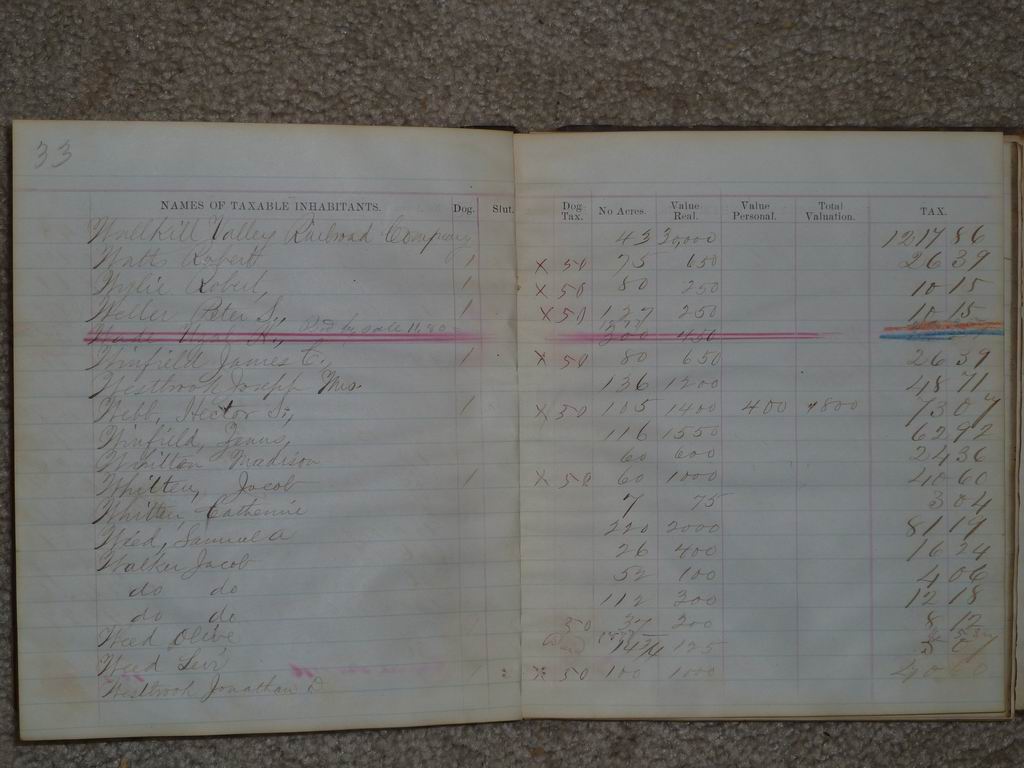 33
NAMES OF TAXABLE INHABITANTS. Dog. Slut. Dog Tax. No Acres. Value Real. Value Personal. Total Valuation. TAX.
Wallkill Valley Railroad Company 43 30,000 1217 86
Watts Robert 1 X 50 75 650 26 39
Wylie Robert, 1 X 50 80 250 10 15
Weller Peter S., 1 X 50 127 250 10 15
Wade 200 450
Winfield James C., 1 X 50 80 650 26 39
Westbrook Joseph Mrs 136 1200 48 71
Webb, Hector S., 1 X 50 105 1400 400 1800 73 07
Winfield, 116 1550 62 92
Whitten Madison 60 600 24 36
Whitten, Jacob 1 X 50 60 1000 40 60
Whitten Catherine 7 75 3 04
Weed, Samuel A 220 2000 81 19
Walker Jacob 26 400 16 24
do do 52 100 4 06
do do 112 300 12 18
Weed Olive 50 37 200 8 12
Weed Levi 125 5 07
Westbrook Jonathan D 1 X 50 100 1000 40 60